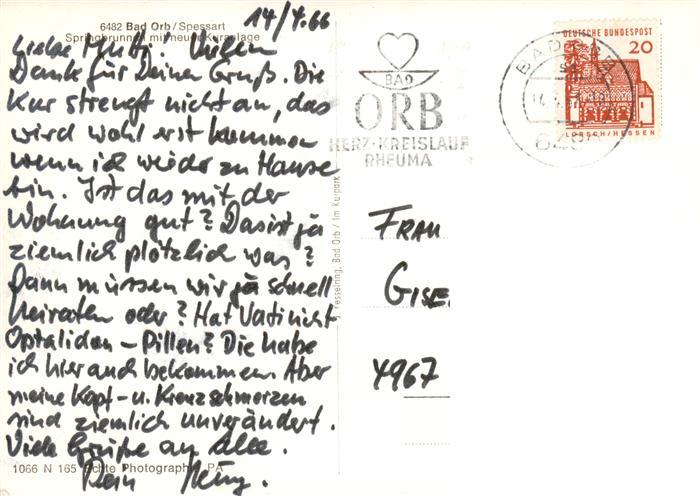 14/4.66
6482 Bad Orb/Spessart
Springbrunnen mit neuer Kuranlage
Liebe Mutti! Vielen
Dank für Deinen Gruß. Die
Kur strengt nicht an, das
wird wohl erst kommen
wenn ich wieder zu Hause
bin. Ist das mit der
Wohnung gut? Das ist ja
ziemlich plötzlich was?
Dann müssen wir ja schnell
heiraten oder? Hat Vati nicht
Optalidon - Pillen? Die habe
ich hier auch bekommen. Aber
meine Kopf- u. Kreuzschmerzen
sind ziemlich unverändert.
Viele Grüße an alle.
Dein
1066 N 165 Echte Photographie PA
Bad Orb / Im Kurpark
BAD
ORB
HERZ-KREISLAUF
RHEUMA
DEUTSCHE BUNDESPOST
20
LORSCH/HESSEN
FRAU
GISE
4967